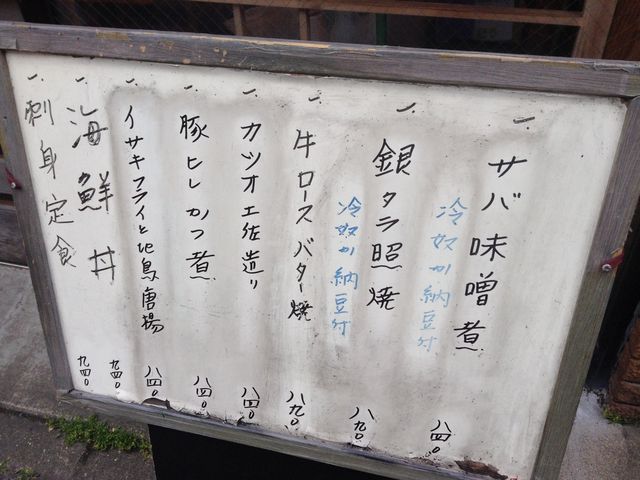 一、サバ味噌煮 八四〇
冷奴か納豆付
一、銀タラ照焼 八九〇
冷奴か納豆付
一、牛ロースバター焼 八九〇
一、カツオ土佐造り 八四〇
一、豚ヒレかつ煮 八四〇
一、イサキフライと地鳥唐揚 八四〇
一、海鮮丼 九四〇
一、刺身定食 九四〇